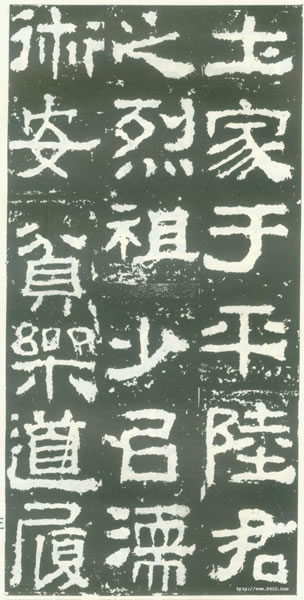 土家于平陸君
之烈祖少㠯濡
術安貧樂道履
http://www.9610.com